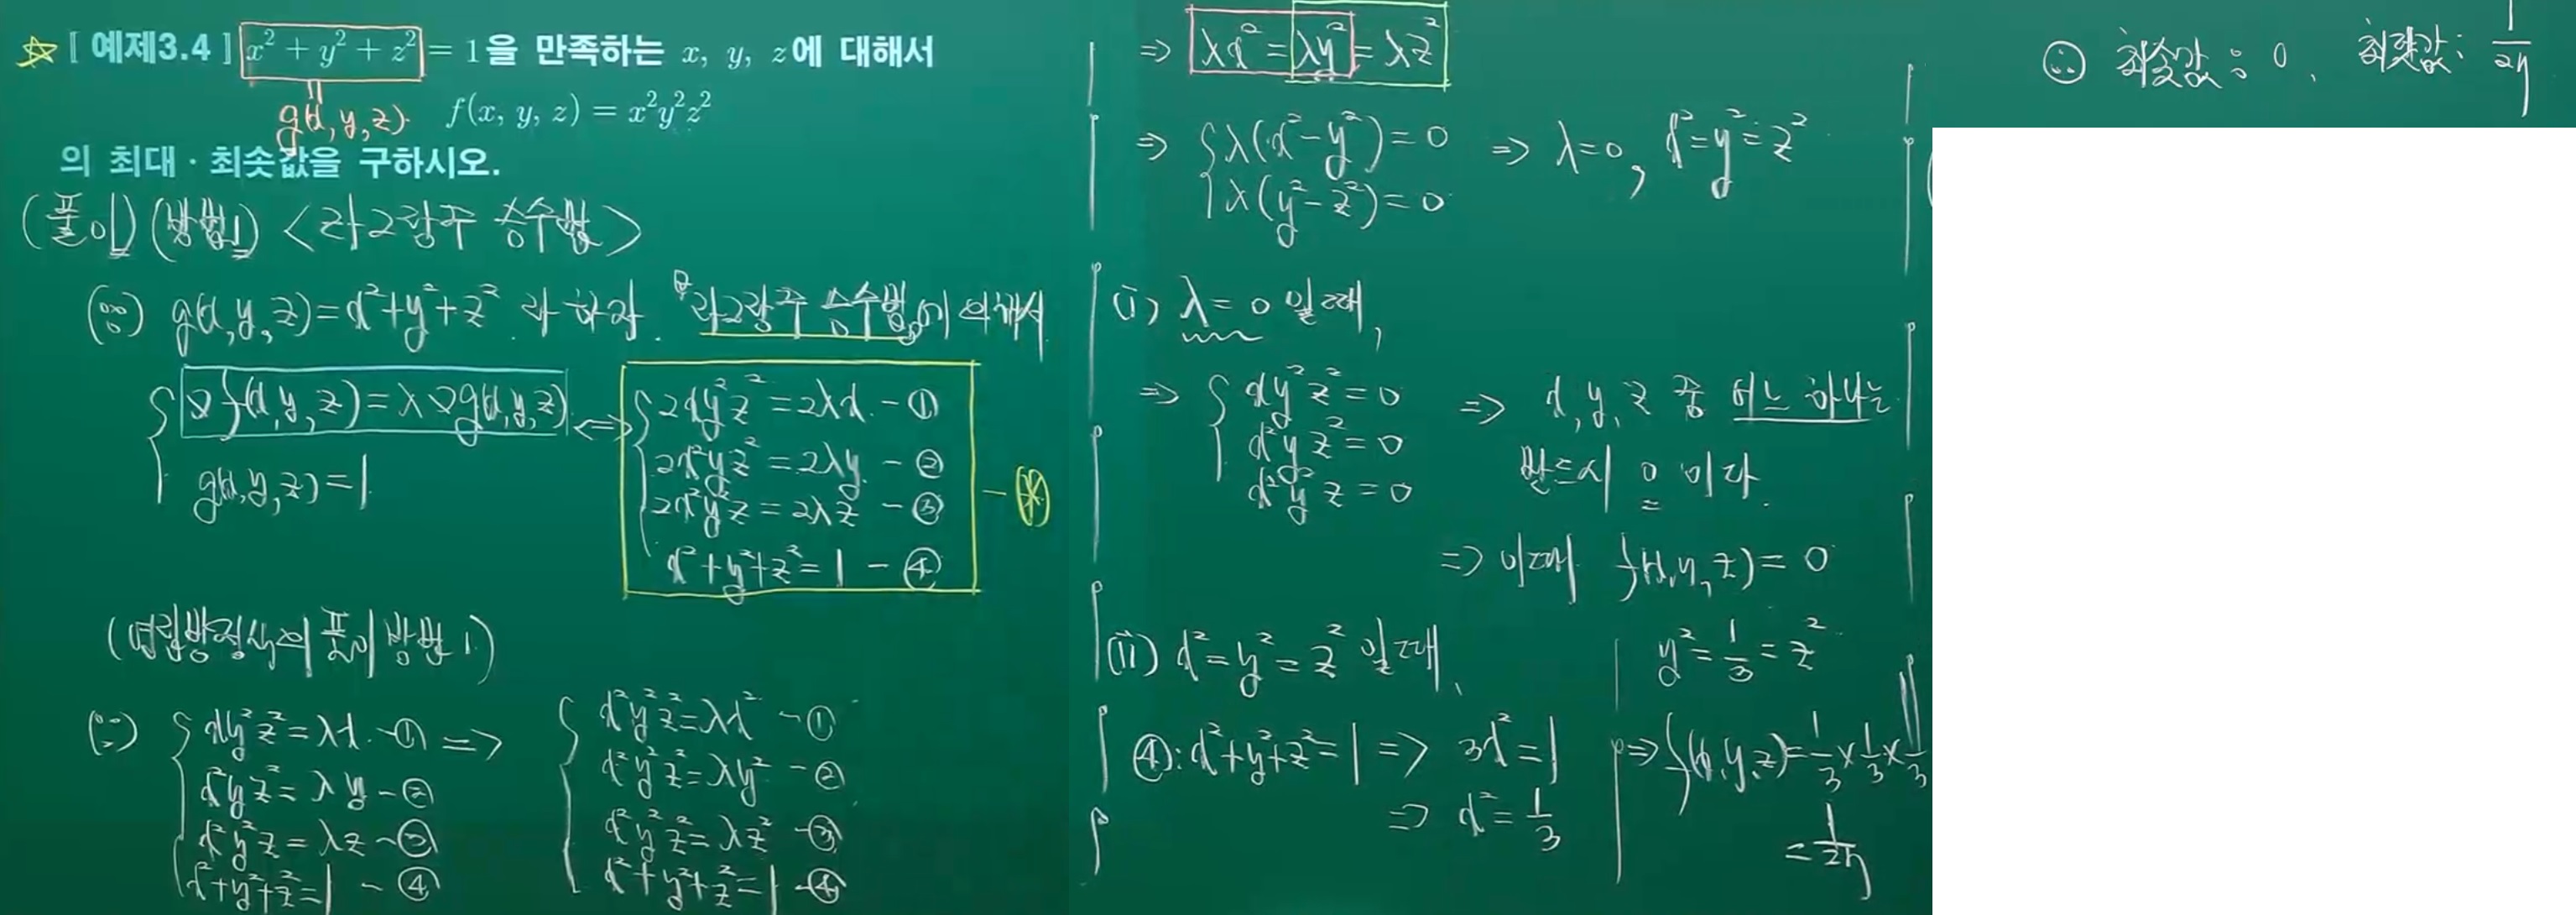 ☆ [ 예제3.4 ] x² + y² + z² = 1을 만족하는 x, y, z에 대해서
g(x,y,z) f(x, y, z) = x²y²z²
의 최대 · 최솟값을 구하시오.
(풀이) (방법1) <라그랑주 승수법>
(∵) g(x,y,z)=x²+y²+z² 라 하자. 라그랑주 승수법에 의해서
∇f(x,y,z)=λ∇g(x,y,z) <=> 2xy²z²=2λx - ①
2x²yz²=2λy - ②
g(x,y,z)=1
2x²y²z=2λz - ③
- ⊛
x²+y²+z²=1 - ④
(연립방정식의 풀이 방법 1.)
(∵) xy²z²=λx - ① => x²y²z²=λx² - ①
x²yz²=λy - ② x²y²z²=λy² - ②
x²y²z=λz - ③ x²y²z²=λz² - ③
x²+y²+z²=1 - ④ x²+y²+z²=1 - ④
=> λx²=λy²=λz²
=> λ(x²-y²)=0 => λ=0, x²=y²=z²
λ(y²-z²)=0
(i) λ=0 일때,
=> xy²z²=0 => x, y, z 중 어느 하나는
x²yz²=0
반드시 0 이다.
x²y²z=0
=> 이때 f(x,y,z)=0
(ii) x²=y²=z² 일때,
④: x²+y²+z²=1 => 3x²=1
=> x²=1/3
y²=1/3=z²
=> f(x,y,z)=1/3×1/3×1/3
=1/27
∴ 최솟값 : 0, 최댓값: 1/27